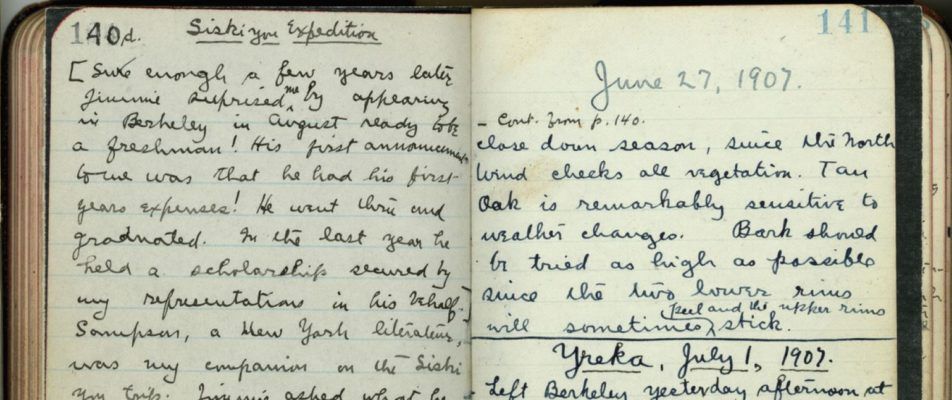 140d.
Siskiyou Expedition
[ Sure enough a few years later
Jimmie suprised me by appearing
in Berkeley in August ready to be
a freshman! His first announcement
to me was that he had his first
years expenses! He went thru and
graduated. In the last year he
held a scholarship secured by
my representations in his behalf.
Sampson, a New York literateur,
was my companion on the Siski
you trip. Jimmie asked what he
141
June 27, 1907.
- Cont. from p. 140.
close down season, since the North
Wind checks all vegetation. Tan
Oak is remarkably sensitive to
weather changes. Bark should
be tried as high as possible
since the two lower rims
will sometimes peel and the upper rims stick.
Yreka, July 1, 1907.
Left Berkeley yesterday afternoon at